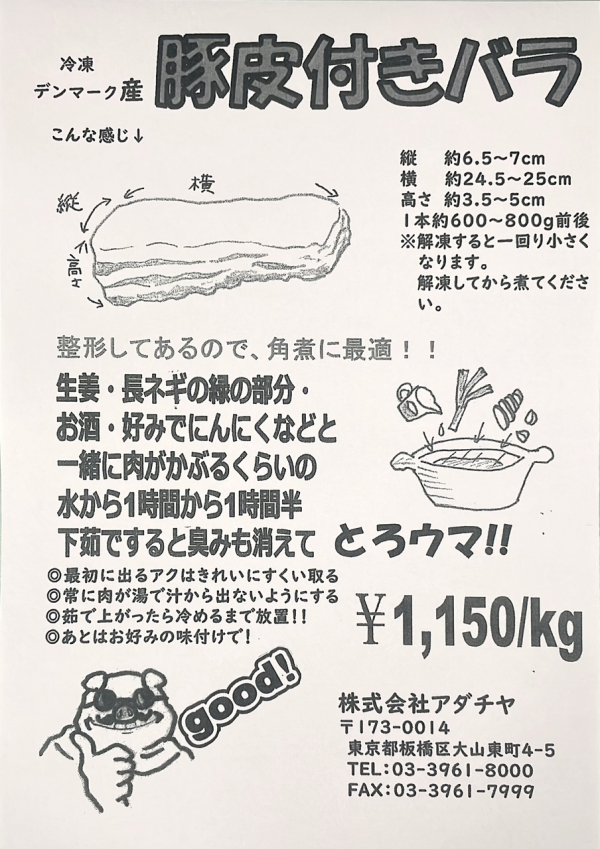 冷凍
デンマーク産
豚皮付きバラ
こんな感じ↓
縦
横
高さ
縦 約6.5～7cm
横 約24.5～25cm
高さ 約3.5～5cm
1本約600～800g前後
※解凍すると一回り小さく
なります。
解凍してから煮てくださ
い。
整形してあるので、角煮に最適！！
生姜・長ネギの緑の部分・
お酒・好みでにんにくなどと
一緒に肉がかぶるくらいの
水から1時間から1時間半
下茹ですると臭みも消えて とろウマ!!
◎最初に出るアクはきれいにすくい取る
◎常に肉が湯で汁から出ないようにする
◎茹で上がったら冷めるまで放置!!
◎あとはお好みの味付けで!
￥1,150/kg
good!
株式会社アダチヤ
〒173-0014
東京都板橋区大山東町4-5
TEL:03-3961-8000
FAX:03-3961-7999